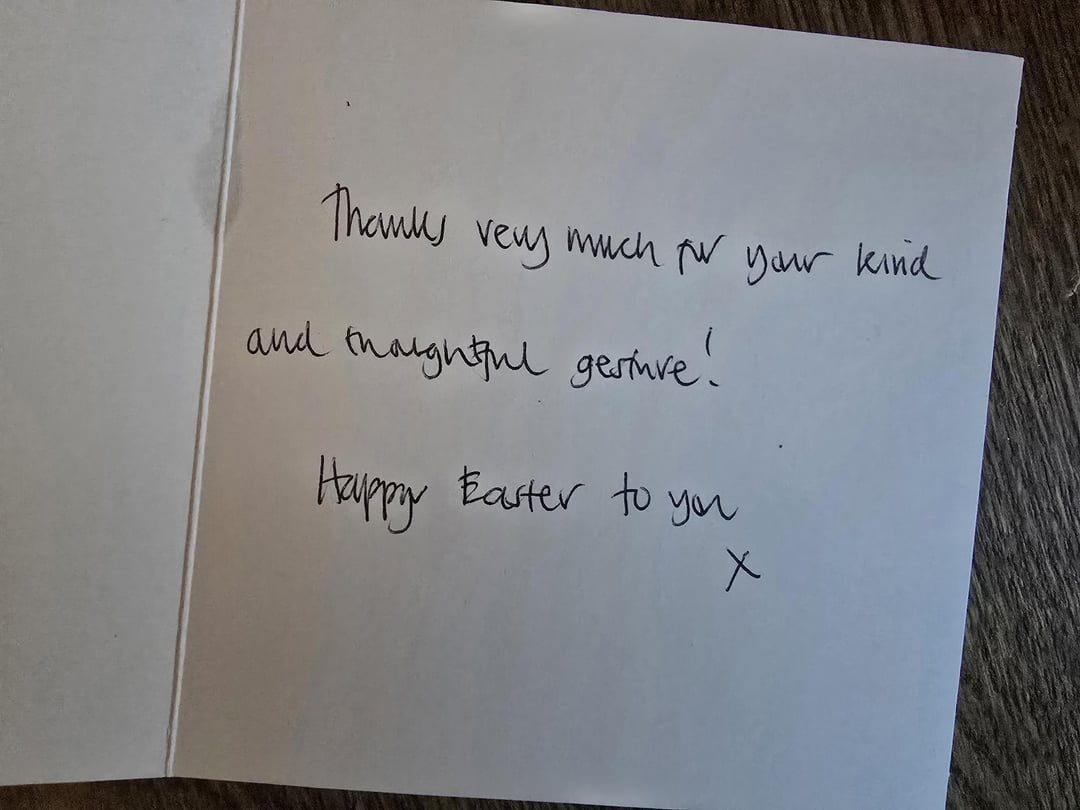 Thanks very much for your kind
and thoughtful gesture!
Happy Easter to you
X